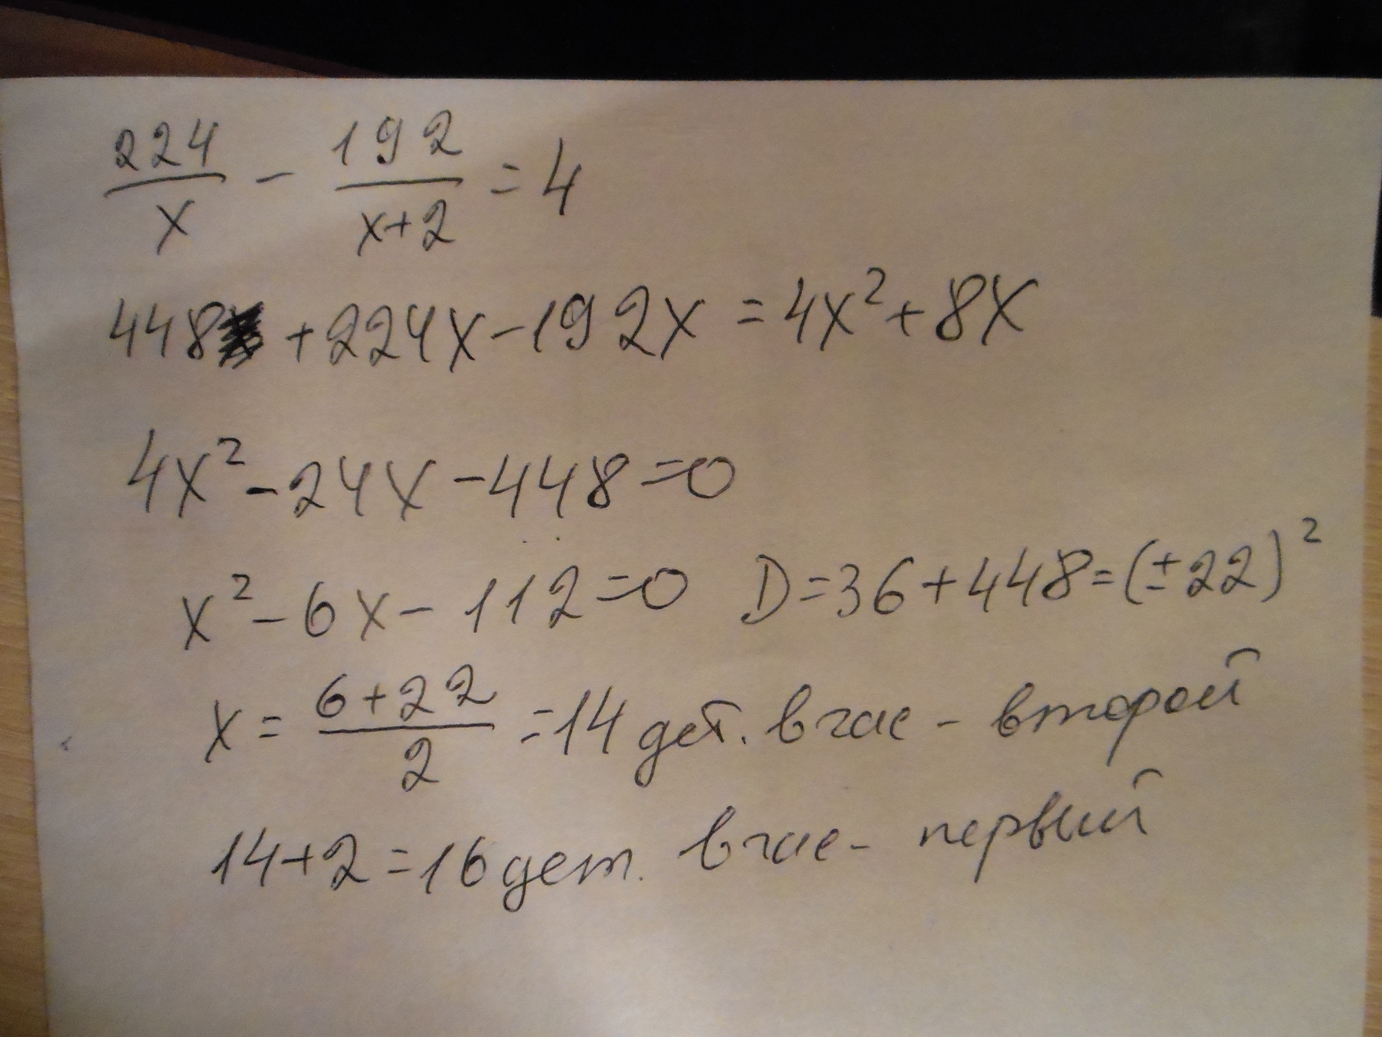 224/x - 192/(x+2) = 4
448 + 224x - 192x = 4x² + 8x
4x² - 24x - 448 = 0
x² - 6x - 112 = 0 D = 36 + 448 = (±22)²
x = (6+22)/2 = 14 дет. в час - второй
14 + 2 = 16 дет. в час - первый